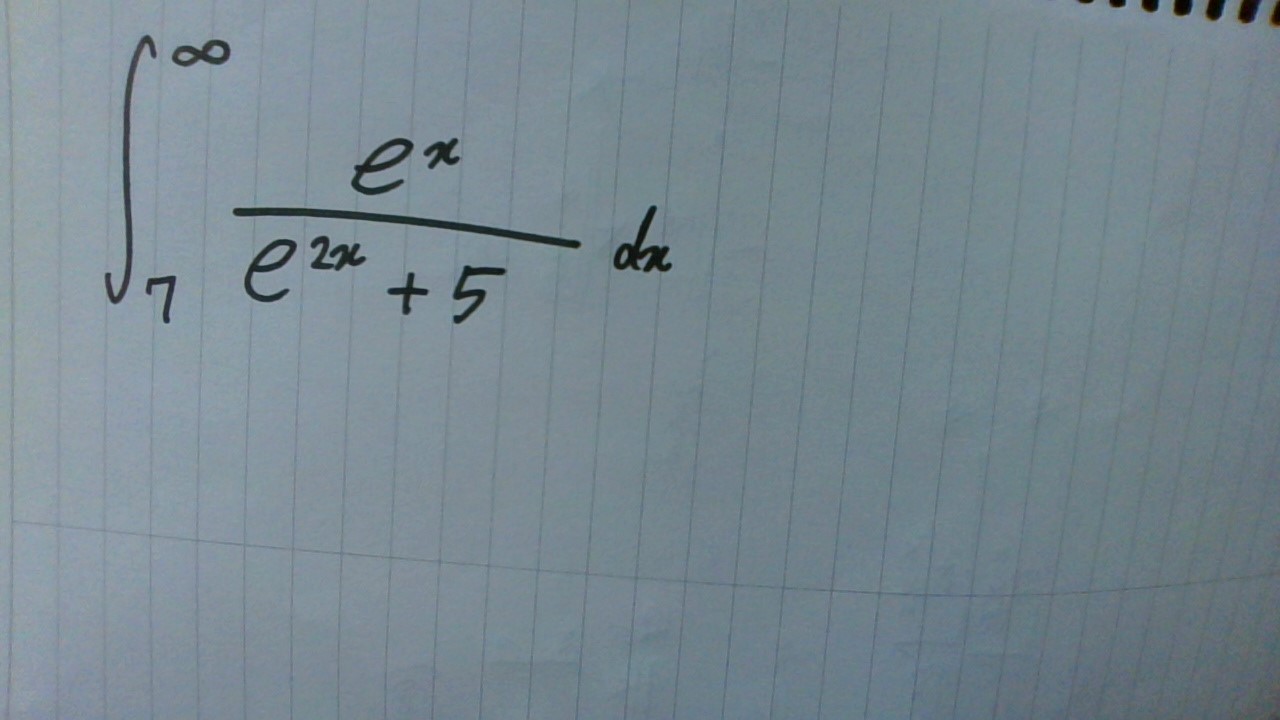 ∫₇^∞ e^x / (e^{2x} + 5) dx